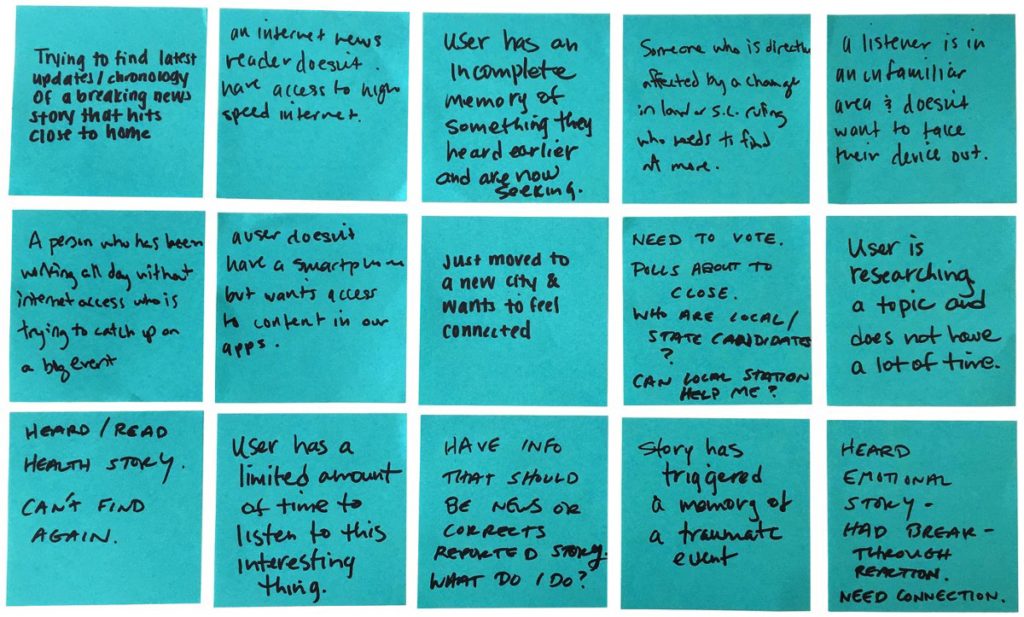 Trying to find latest
updates/chronology
of a breaking news
story that hits
close to home
an internet news
reader doesn't
have access to high
speed internet.
User has an
incomplete
memory of
something they
heard earlier
and are now
seeking.
Someone who is directly
affected by a change
in law or s.c. ruling
who needs to find
out more.
a listener is in
an unfamiliar
area & doesn't
want to take
their device out.
A person who has been
working all day without
internet access who is
trying to catch up on
a big event
a user doesn't
have a smartphone
but wants access
to content in our
apps.
Just moved to
a new city &
wants to feel
connected
NEED TO VOTE.
POLLS ABOUT TO
CLOSE.
WHO ARE LOCAL/
STATE CANDIDATES
?
CAN LOCAL STATION
HELP ME?
User is
researching
a topic and
does not have
a lot of time.
HEARD / READ
HEALTH STORY.
CAN'T FIND
AGAIN.
User has a
limited amount
of time to
listen to this
interesting
thing.
HAVE INFO
THAT SHOULD
BE NEWS OR
CORRECTS
REPORTED STORY.
WHAT DO I DO?
Story has
triggered
a memory of
a traumatic
event
HEARD
EMOTIONAL
STORY -
HAD BREAK-
THROUGH
REACTION.
NEED CONNECTION.